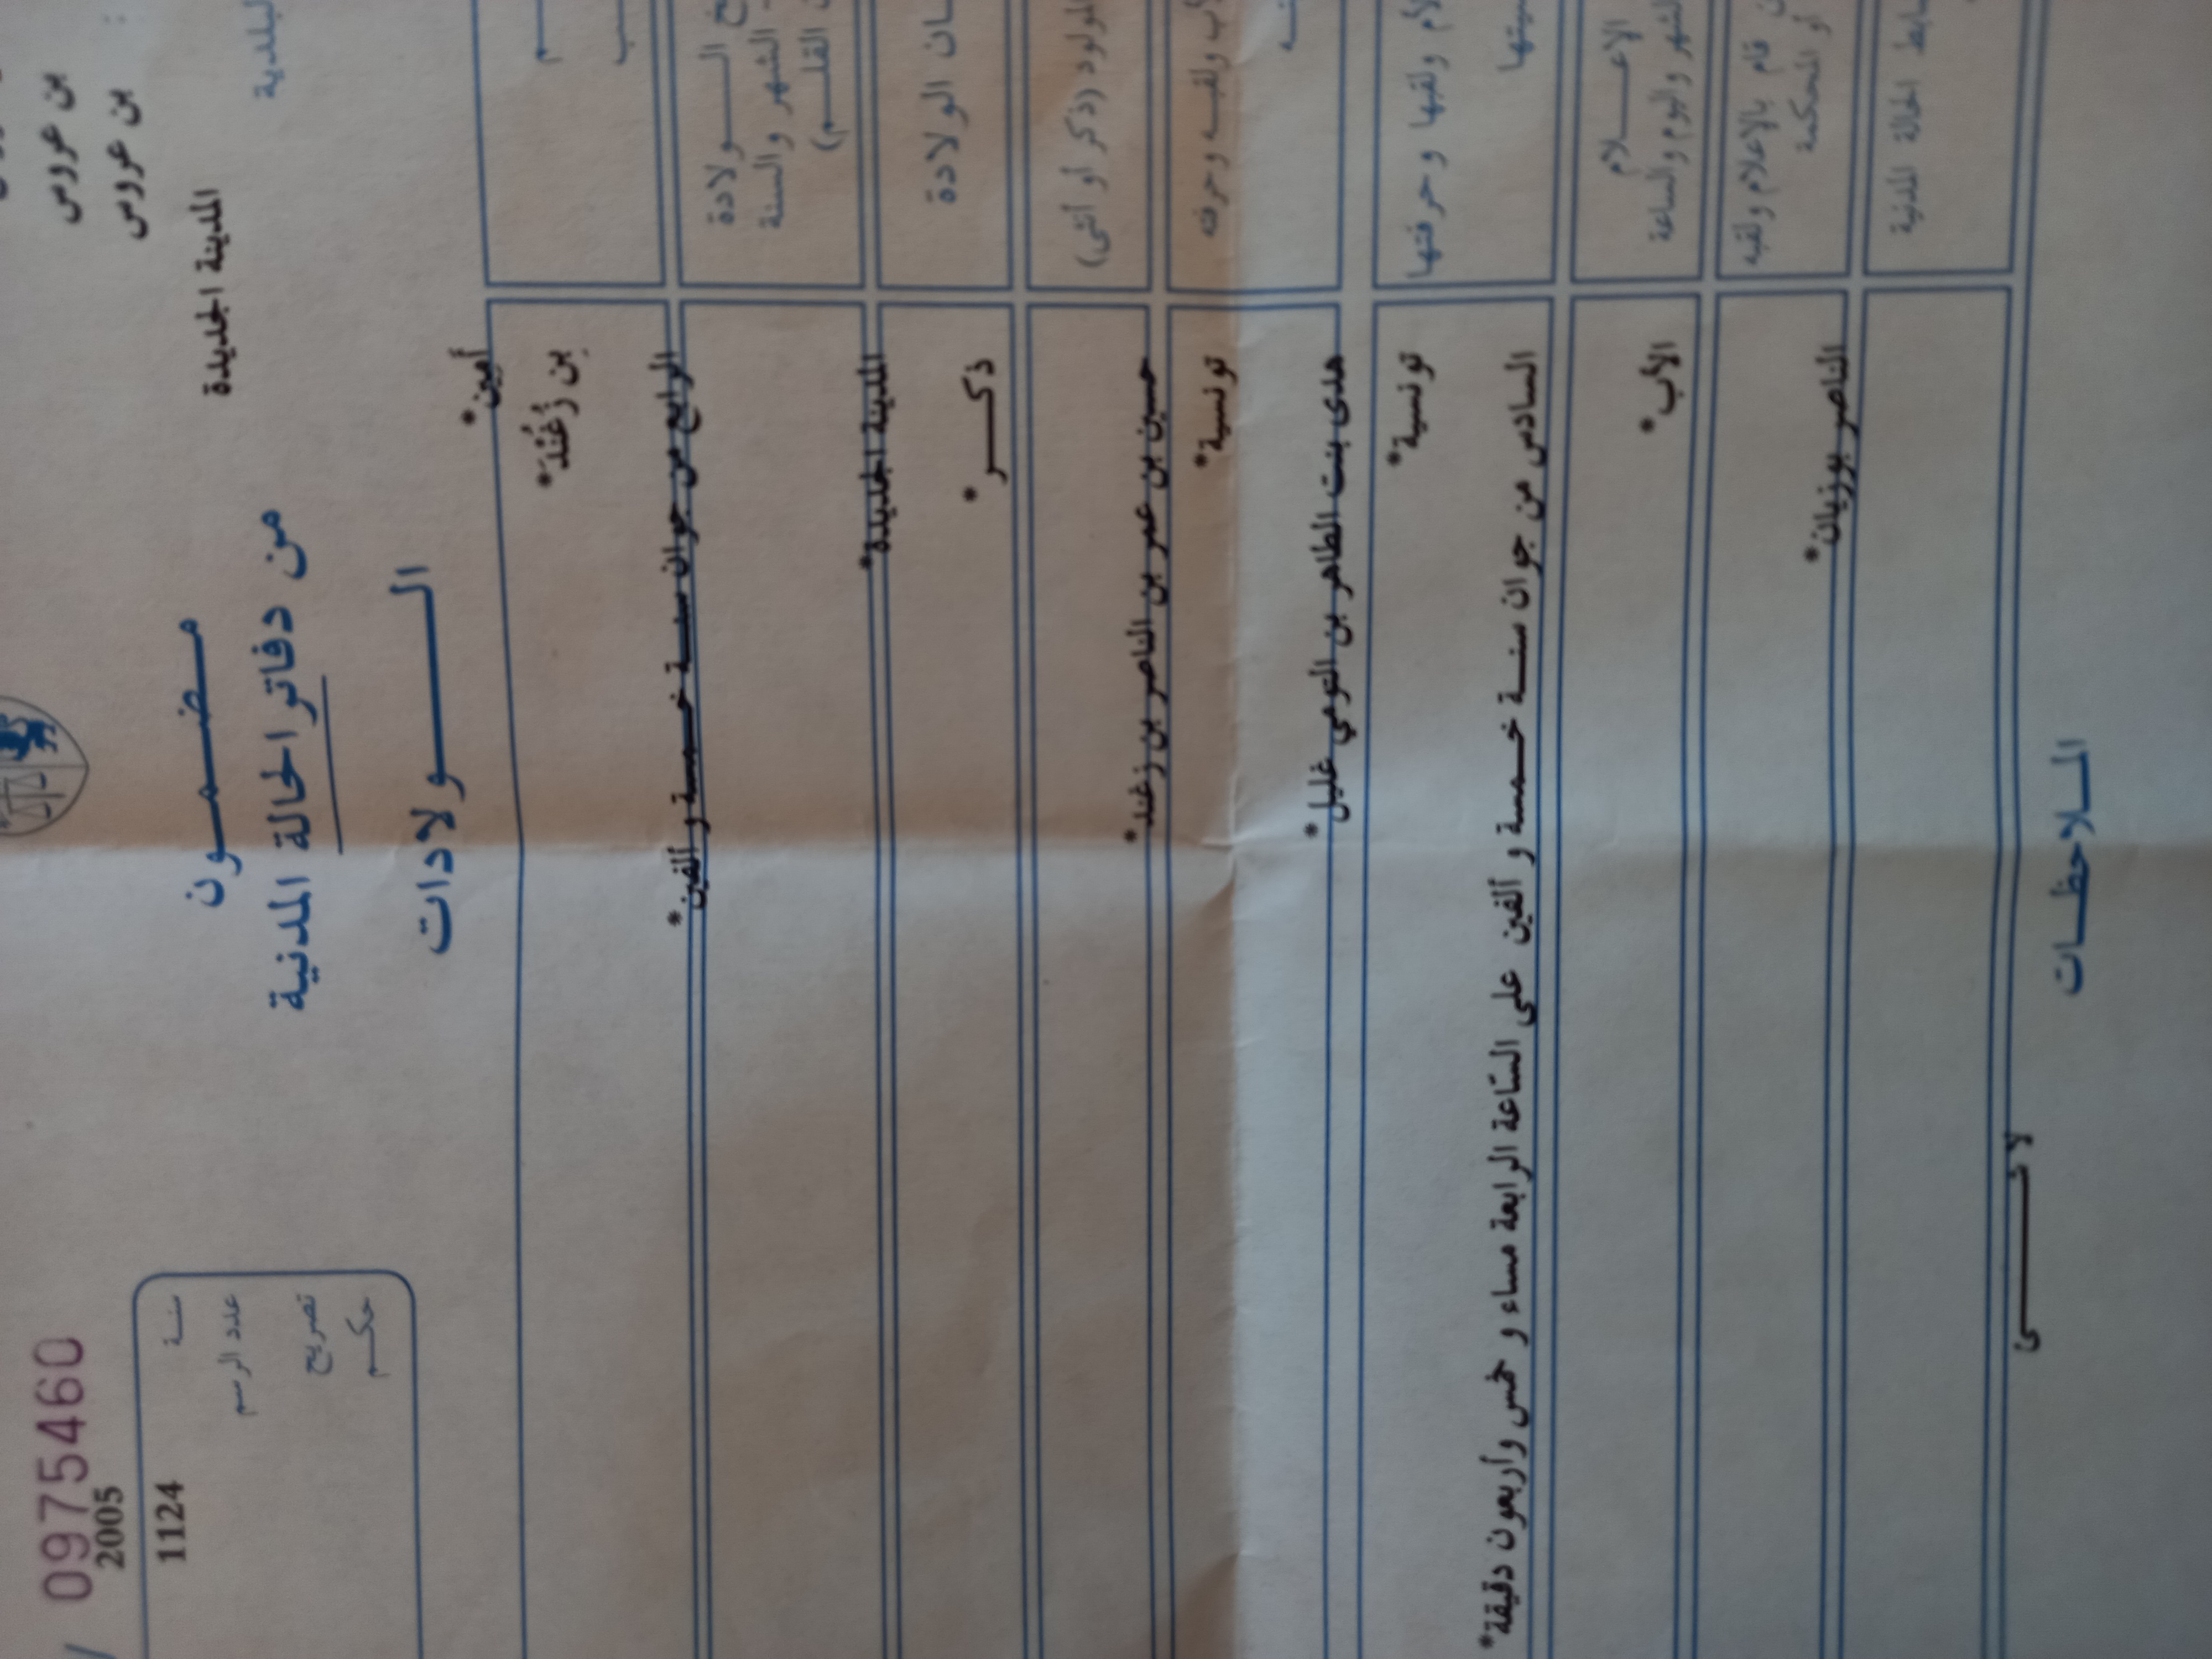 0975460
2005
1124
سنة
عدد الرسم
تصريح
حكم
بن عروس
بن عروس
المدينة الجديدة
البلدية
مضمون
من دفاتر الحالة المدنية
الولادات
أمين*
بن زُغُنْدَ*
الولادة
الشهر والسنة
القلم)
الرابع من جوان سنة خمسة و ألفين*
الولادة
المدينة الجديدة*
المولود (ذكر أو أنثى)
ذكر*
ولقبه وحرفته
حسين بن عمر بن الناصر بن زغند*
تونسية*
الأم ولقبها وحرفتها
هدى بنت الطاهر بن التومي غليل*
تونسية*
الاعلام
الشهر واليوم والساعة
السادس من جوان سنة خمسة و ألفين على السّاعة الرابعة مساء و خمس وأربعون دقيقة*
قام بالاعلام ولقبه
أو المحكمة
الأب*
ضابط الحالة المدنية
الناصر بوزيان*
الملاحظات
لا شيء